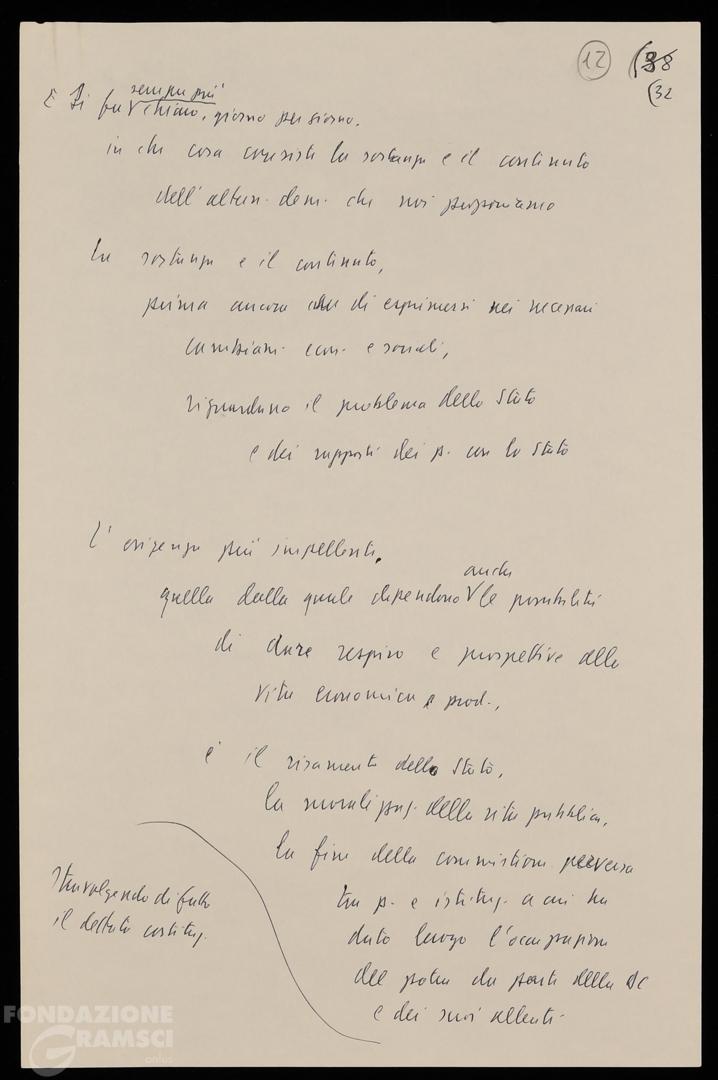 12 (38
(32
sempre più
E si fa V chiaro, giorno per giorno,
in che cosa consiste la sostanza e il contenuto
dell'altern. dem. che noi proponiamo
La sostanza e il contenuto,
prima ancora che di esprimersi nei necessari
cambiam. econ. e sociali,
riguardano il problema dello Stato
e dei rapporti dei p. con lo Stato
L'esigenza più impellente,
anche
quella dalla quale dipendono V le possibilità
di dare respiro e prospettive alla
vita economica e prod.,
è il risanamento dello Stato,
la moralizzaz. della vita pubblica,
la fine della commistione perversa
tra p. e istituz. a cui ha
dato luogo l'occupazione
del potere da parte della DC
e dei suoi alleati.
stravolgendo di fatto
il dettato costituz.
FONDAZIONE
GRAMSCI
onlus